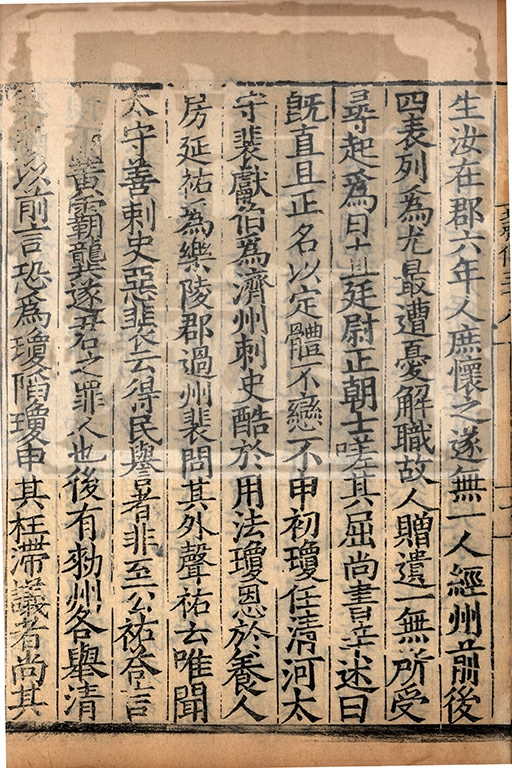 生汝在郡六年人庶懷之遂無一人經州前後
四表列爲尤最遭憂解職故人贈遺一無所受
尋起爲廷尉正朝士嗟其屈尚書辛述曰
既直且正名以定體不戀不申初瓊任清河太
守裴獻伯爲濟州刺史酷於用法瓊恩於養人
房延祐爲樂陵郡過州裴問其外聲祐云唯聞
太守善刺史惡裴云得民譽者非至公祐荅言
黃霸龔遂君之罪人也後有勑州各舉清
以前言恐爲瓊陷瓊申其枉滯議者尚其